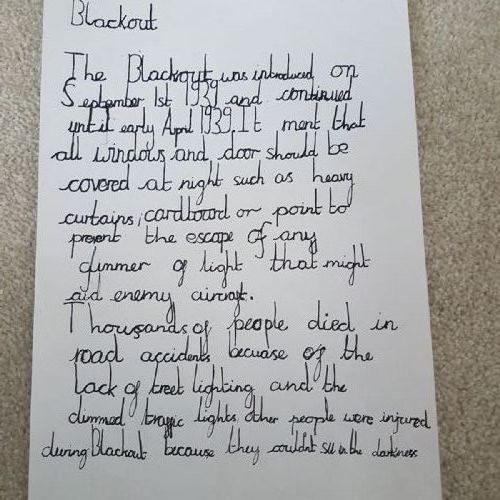 Blackout
The Blackout was introduced on
September 1st 1939 and continued
until early April 1939. It ment that
all windows and door should be
covered at night such as heavy
curtains, cardboard or point to
prevent the escape of any
glimmer of light that might
aid enemy aircraft.
Thousands of people died in
road accidents becuase of the
lack of treet lighting and the
dimmed traffic lights. Other people were injured
during Blackout because they couldn't see in the darkness